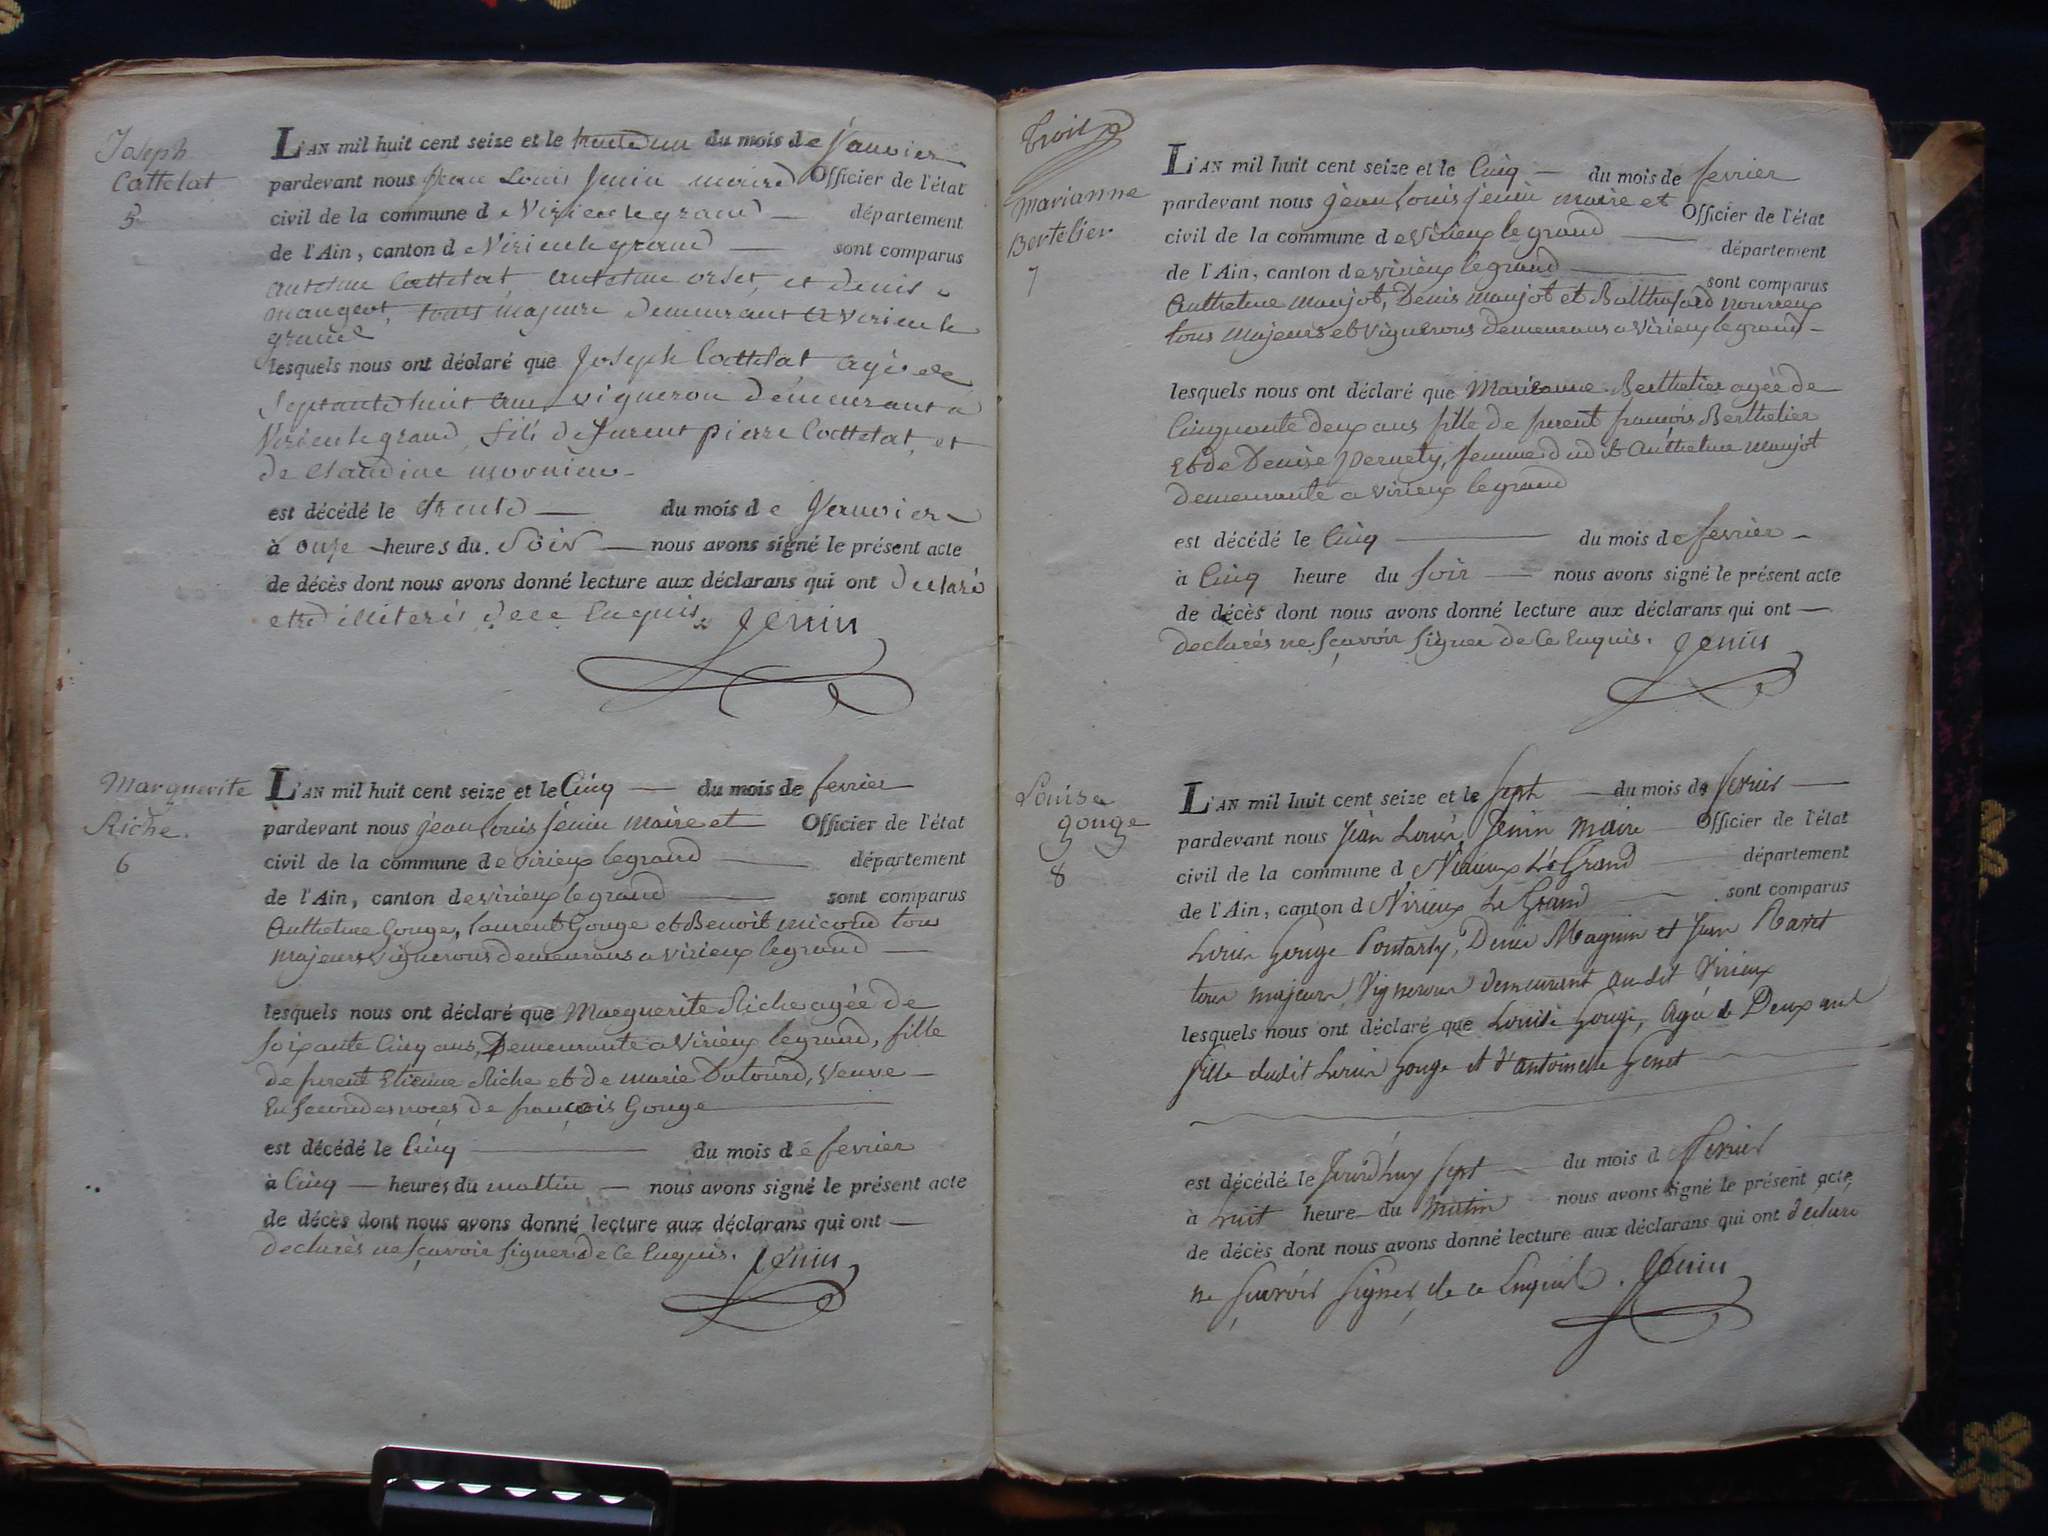 Joseph
Cattelat
5
L'AN mil huit cent seize et le trente un du mois de Janvier
pardevant nous Jean Louis Jenin maire Officier de l'état
civil de la commune de Virieu le grand département
de l'Ain, canton de Virieu le grand sont comparus
antelme Cattelat, antelme orset, et denis
maugeot, touts majeurs demeurant a virieu le
grand
lesquels nous ont déclaré que Joseph Cattelat agé de
septante huit ans vigneron demeurant a
Virieu le grand, fils de furent pierre Cattelat, et
de claudine
est décédé le trente du mois de Janvier
à onze heures du soir nous avons signé le présent acte
de décès dont nous avons donné lecture aux déclarans qui ont declaré
etre illiterés dece Enquis. Jenin
Marguerite
Riche.
6
L'AN mil huit cent seize et le Cinq du mois de fevrier
pardevant nous jean louis jenin maire et Officier de l'état
civil de la commune de virieux le grand département
de l'Ain, canton de virieux le grand sont comparus
Anthelme Gouge, laurent Gouge et Benoit micoud tous
majeurs vignerons demeurans a virieux le grand
lesquels nous ont déclaré que Marguerite Riche agée de
soixante Cinq ans, Demeurante a Virieux le grand, fille
de furent Etienne Riche et de marie Dutourd, veuve
En secondes noces de françois Gouge
est décédé le Cinq du mois de fevrier
à Cinq heures du mattin nous avons signé le présent acte
de décès dont nous avons donné lecture aux déclarans qui ont
declarés ne sçavoir signer de Ce Enquis. Jenin
Trois
marianne
Bertelier
7
L'AN mil huit cent seize et le Cinq du mois de fevrier
pardevant nous jean louis jenin maire et Officier de l'état
civil de la commune de virieux le grand département
de l'Ain, canton de virieux le grand sont comparus
Anthelme Maujot, Denis Maujot et Balthasard
tous majeurs et vignerons demeurans a virieux le grand
lesquels nous ont déclaré que Marieanne Berthelier agée de
Cinquante deux ans fille de furent françois Berthelier
Et de Denise Vernety, femme dudit Anthelme Maujot
demeurante a virieux le grand
est décédé le Cinq du mois de fevrier
à Cinq heure du soir nous avons signé le présent acte
de décès dont nous avons donné lecture aux déclarans qui ont
declarés ne sçavoir signer de Ce Enquis. Jenin
Louise
gouge
8
L'AN mil huit cent seize et le sept du mois de fevrier
pardevant nous Jean Louis Jenin Maire Officier de l'état
civil de la commune de Virieux Le Grand département
de l'Ain, canton de Virieux Le Grand sont comparus
Gouge Pontarly, Denis Magnin et Jean Ravet
tous majeurs Vignerons demeurant audit Virieux
lesquels nous ont déclaré que Louise Gouge, Agée de Deux ans
fille dudit Gouge et d'antoinette Genet
est décédé le Jourd'huy sept du mois de fevrier
à huit heure du Matin nous avons signé le présent acte
de décès dont nous avons donné lecture aux déclarans qui ont declaré
ne scavoir signer de ce Enquis. Jenin